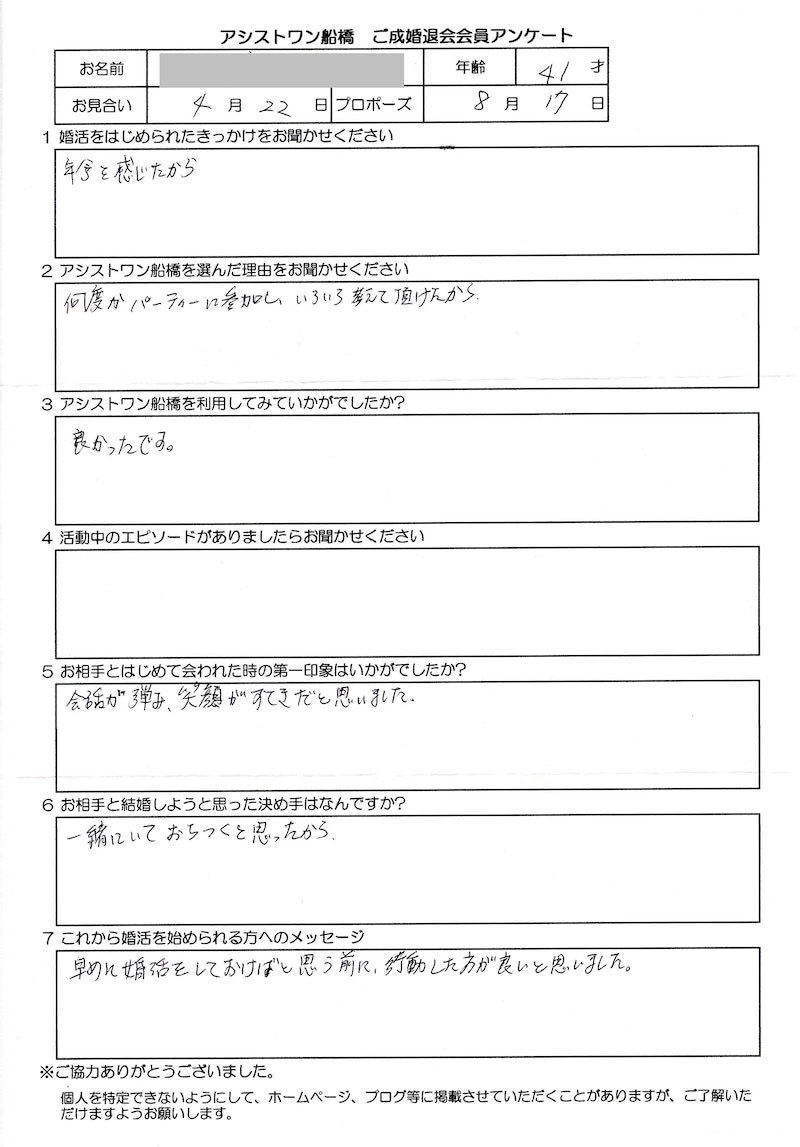 アシストワン船橋　ご成婚退会会員アンケート
お名前 年齢 41 才
お見合い 4 月 22 日 プロポーズ 8 月 17 日
1 婚活をはじめられたきっかけをお聞かせください
年令を感じたから
2 アシストワン船橋を選んだ理由をお聞かせください
何度かパーティーに参加し、いろいろ教えて頂けたから.
3 アシストワン船橋を利用してみていかがでしたか?
良かったです。
4 活動中のエピソードがありましたらお聞かせください
5 お相手とはじめて会われた時の第一印象はいかがでしたか?
会話が弾み、笑顔がすてきだと思いました.
6 お相手と結婚しようと思った決め手はなんですか?
一緒にいておちつくと思ったから.
7 これから婚活を始められる方へのメッセージ
早めに婚活をしておけばと思う前に、行動した方が良いと思いました。
※ご協力ありがとうございました。
個人を特定できないようにして、ホームページ、ブログ等に掲載させていただくことがありますが、ご了解いた
だけますようお願いします。